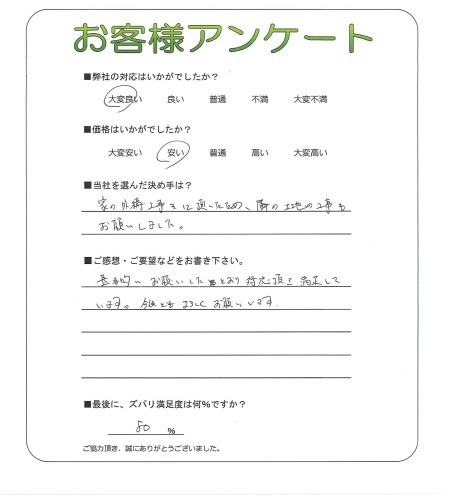 お客様アンケート
■弊社の対応はいかがでしたか？
大変良い 良い 普通 不満 大変不満
■価格はいかがでしたか？
大変安い 安い 普通 高い 大変高い
■当社を選んだ決め手は？
家の外構工事 に頂いたため、隣の土地の工事も
お願いしました。
■ご感想・ご要望などをお書き下さい。
基本的に お願いしたとおり 対応頂き 満足して
います。今後とも よろしく お願いします.
■最後に、ズバリ満足度は何%ですか？
80 %
ご協力頂き、誠にありがとうございました。